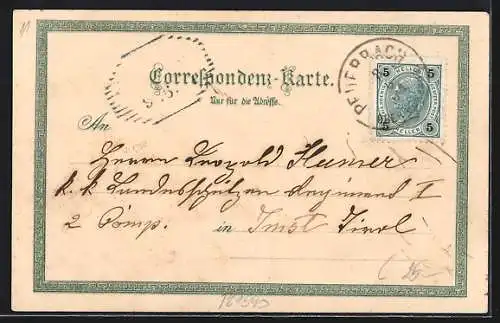 Correspondenz-Karte.
Nur für die Adresse.
PEUERBACH
5 5
HELLER
5 5
An
Herrn Leopold
k. k. Landesschützen Regiment I
2 Comp. in Imst Tirol